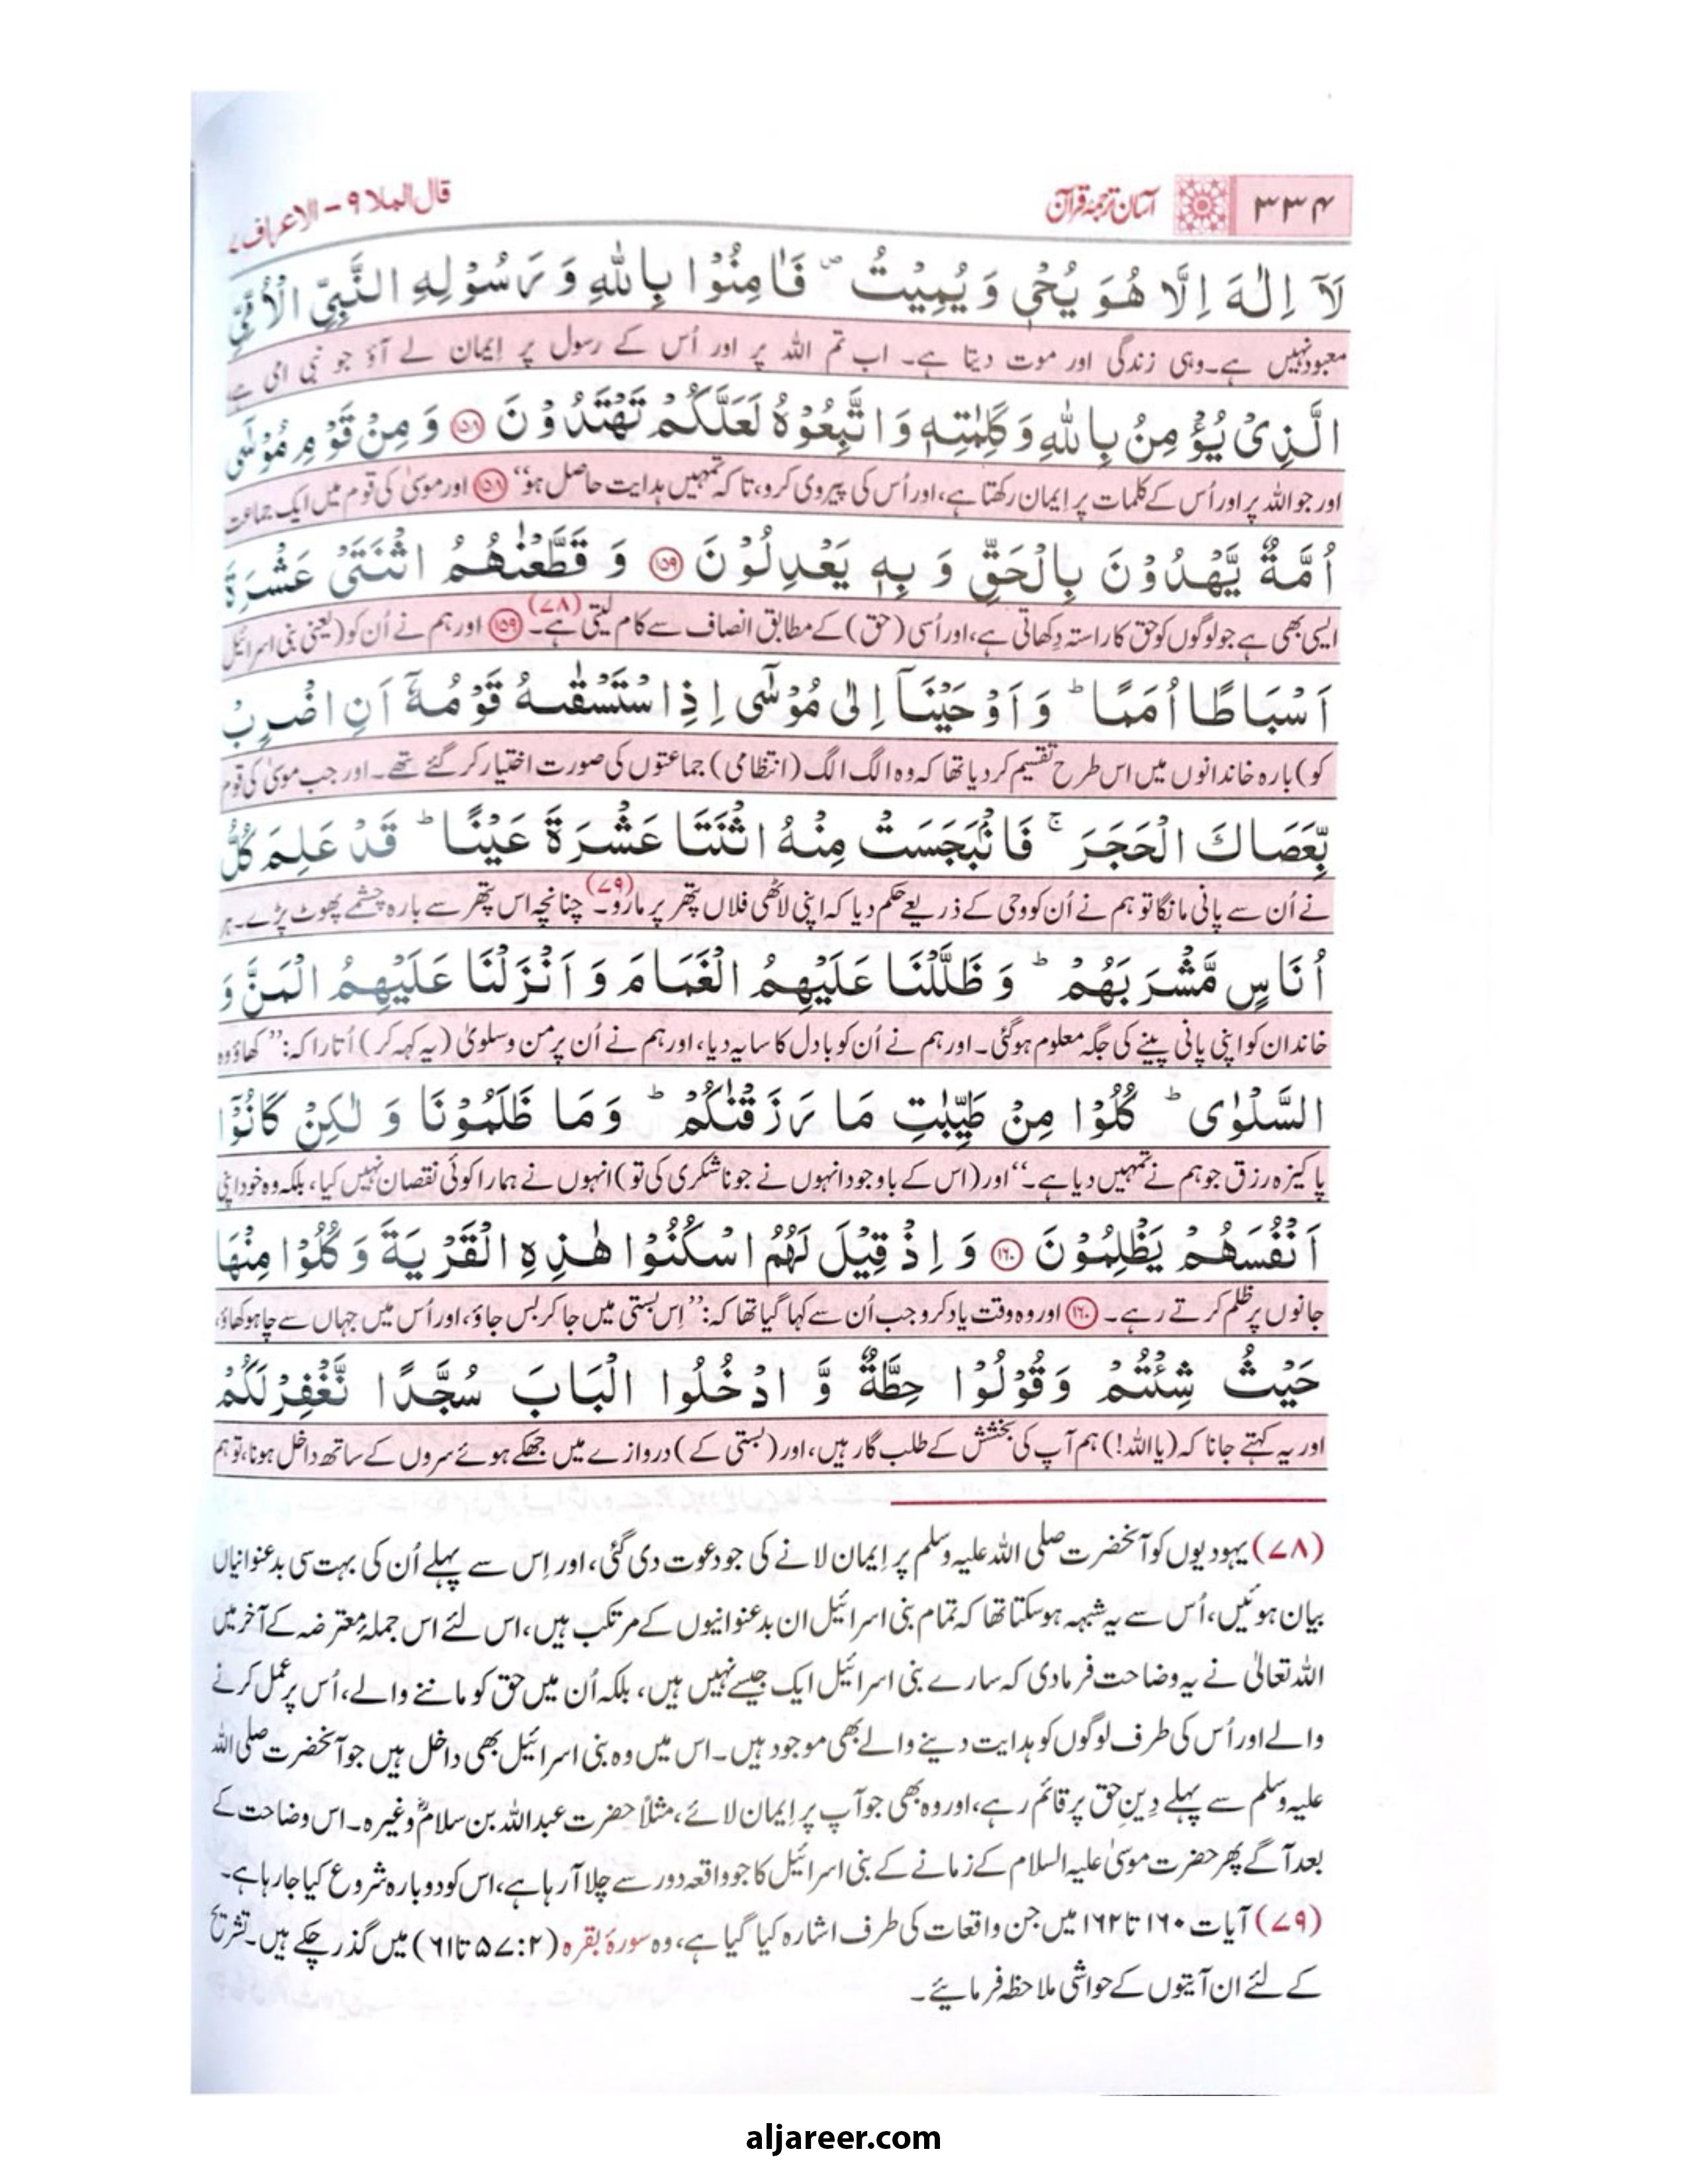 ۳۳۴ آسان ترجمۂ قرآن قال الملا ۹ – الاعراف ۷
لَاۤ اِلٰهَ اِلَّا هُوَ يُحْيٖ وَ يُمِيْتُ ۪ فَاٰمِنُوْا بِاللّٰهِ وَ رَسُوْلِهِ النَّبِيِّ الْاُمِّيِّ
معبود نہیں ہے۔ وہی زندگی اور موت دیتا ہے۔ اب تم اللہ پر اور اُس کے رسول پر ایمان لے آؤ جو نبی امی ہے
الَّذِيْ يُؤْمِنُ بِاللّٰهِ وَ كَلِمٰتِهٖ وَ اتَّبِعُوْهُ لَعَلَّكُمْ تَهْتَدُوْنَ ﴿۱۵۸﴾ وَ مِنْ قَوْمِ مُوْسٰۤى
اور جو اللہ پر اور اُس کے کلمات پر ایمان رکھتا ہے، اور اُس کی پیروی کرو، تاکہ تمہیں ہدایت حاصل ہو‘‘ ﴿۱۵۸﴾ اور موسیٰ کی قوم میں ایک جماعت
اُمَّةٌ يَّهْدُوْنَ بِالْحَقِّ وَ بِهٖ يَعْدِلُوْنَ ﴿۱۵۹﴾ وَ قَطَّعْنٰهُمُ اثْنَتَيْ عَشْرَةَ
ایسی بھی ہے جو لوگوں کو حق کا راستہ دِکھاتی ہے، اور اُسی (حق) کے مطابق انصاف سے کام لیتی ہے۔(۷۸) ﴿۱۵۹﴾ اور ہم نے اُن کو (یعنی بنی اسرائیل
اَسْبَاطًا اُمَمًا ؕ وَ اَوْحَيْنَاۤ اِلٰى مُوْسٰۤى اِذِ اسْتَسْقٰىهُ قَوْمُهٗۤ اَنِ اضْرِبْ
کو) بارہ خاندانوں میں اس طرح تقسیم کردیا تھا کہ وہ الگ الگ (انتظامی) جماعتوں کی صورت اختیار کر گئے تھے۔ اور جب موسیٰ کی قوم
بِّعَصَاكَ الْحَجَرَ ۚ فَانْۢبَجَسَتْ مِنْهُ اثْنَتَا عَشْرَةَ عَيْنًا ؕ قَدْ عَلِمَ كُلُّ
نے اُن سے پانی مانگا تو ہم نے اُن کو وحی کے ذریعے حکم دیا کہ اپنی لاٹھی فلاں پتھر پر مارو۔(۷۹) چنانچہ اس پتھر سے بارہ چشمے پھوٹ پڑے۔ ہر
اُنَاسٍ مَّشْرَبَهُمْ ؕ وَ ظَلَّلْنَا عَلَيْهِمُ الْغَمَامَ وَ اَنْزَلْنَا عَلَيْهِمُ الْمَنَّ وَ
خاندان کو اپنی پانی پینے کی جگہ معلوم ہوگئی۔ اور ہم نے اُن کو بادل کا سایہ دیا، اور ہم نے اُن پر من وسلویٰ (یہ کہہ کر) اُتارا کہ: ’’کھاؤ وہ
السَّلْوٰى ؕ كُلُوْا مِنْ طَيِّبٰتِ مَا رَزَقْنٰكُمْ ؕ وَ مَا ظَلَمُوْنَا وَ لٰكِنْ كَانُوْۤا
پاکیزہ رزق جو ہم نے تمہیں دیا ہے۔‘‘ اور (اس کے باوجود انہوں نے جو ناشکری کی تو) انہوں نے ہمارا کوئی نقصان نہیں کیا، بلکہ وہ خود اپنی
اَنْفُسَهُمْ يَظْلِمُوْنَ ﴿۱۶۰﴾ وَ اِذْ قِيْلَ لَهُمُ اسْكُنُوْا هٰذِهِ الْقَرْيَةَ وَ كُلُوْا مِنْهَا
جانوں پر ظلم کرتے رہے۔ ﴿۱۶۰﴾ اور وہ وقت یاد کرو جب اُن سے کہا گیا تھا کہ: ’’اِس بستی میں جا کر بس جاؤ، اور اُس میں جہاں سے چاہو کھاؤ،
حَيْثُ شِئْتُمْ وَ قُوْلُوْا حِطَّةٌ وَّ ادْخُلُوا الْبَابَ سُجَّدًا نَّغْفِرْ لَكُمْ
اور یہ کہتے جانا کہ (یا اللہ!) ہم آپ کی بخشش کے طلب گار ہیں، اور (بستی کے) دروازے میں جھکے ہوئے سروں کے ساتھ داخل ہونا، تو ہم
(۷۸) یہودیوں کو آنحضرت صلی اللہ علیہ وسلم پر اِیمان لانے کی جو دعوت دی گئی، اور اِس سے پہلے اُن کی بہت سی بدعنوانیاں
بیان ہوئیں، اُس سے یہ شبہہ ہوسکتا تھا کہ تمام بنی اسرائیل ان بدعنوانیوں کے مرتکب ہیں، اس لئے اس جملۂ معترضہ کے آخر میں
اللہ تعالیٰ نے یہ وضاحت فرمادی کہ سارے بنی اسرائیل ایک جیسے نہیں ہیں، بلکہ اُن میں حق کو ماننے والے، اُس پر عمل کرنے
والے اور اُس کی طرف لوگوں کو ہدایت دینے والے بھی موجود ہیں۔ اس میں وہ بنی اسرائیل بھی داخل ہیں جو آنحضرت صلی اللہ
علیہ وسلم سے پہلے دِینِ حق پر قائم رہے، اور وہ بھی جو آپ پر اِیمان لائے، مثلاً حضرت عبداللہ بن سلامؓ وغیرہ۔ اس وضاحت کے
بعد آگے پھر حضرت موسیٰ علیہ السلام کے زمانے کے بنی اسرائیل کا جو واقعہ دور سے چلا آرہا ہے، اس کو دوبارہ شروع کیا جارہا ہے۔
(۷۹) آیات ۱۶۰ تا ۱۶۲ میں جن واقعات کی طرف اشارہ کیا گیا ہے، وہ سورۂ بقرہ (۲:۵۷ تا ۶۱) میں گذر چکے ہیں۔ تشریح
کے لئے ان آیتوں کے حواشی ملاحظہ فرمائیے۔
aljareer.com